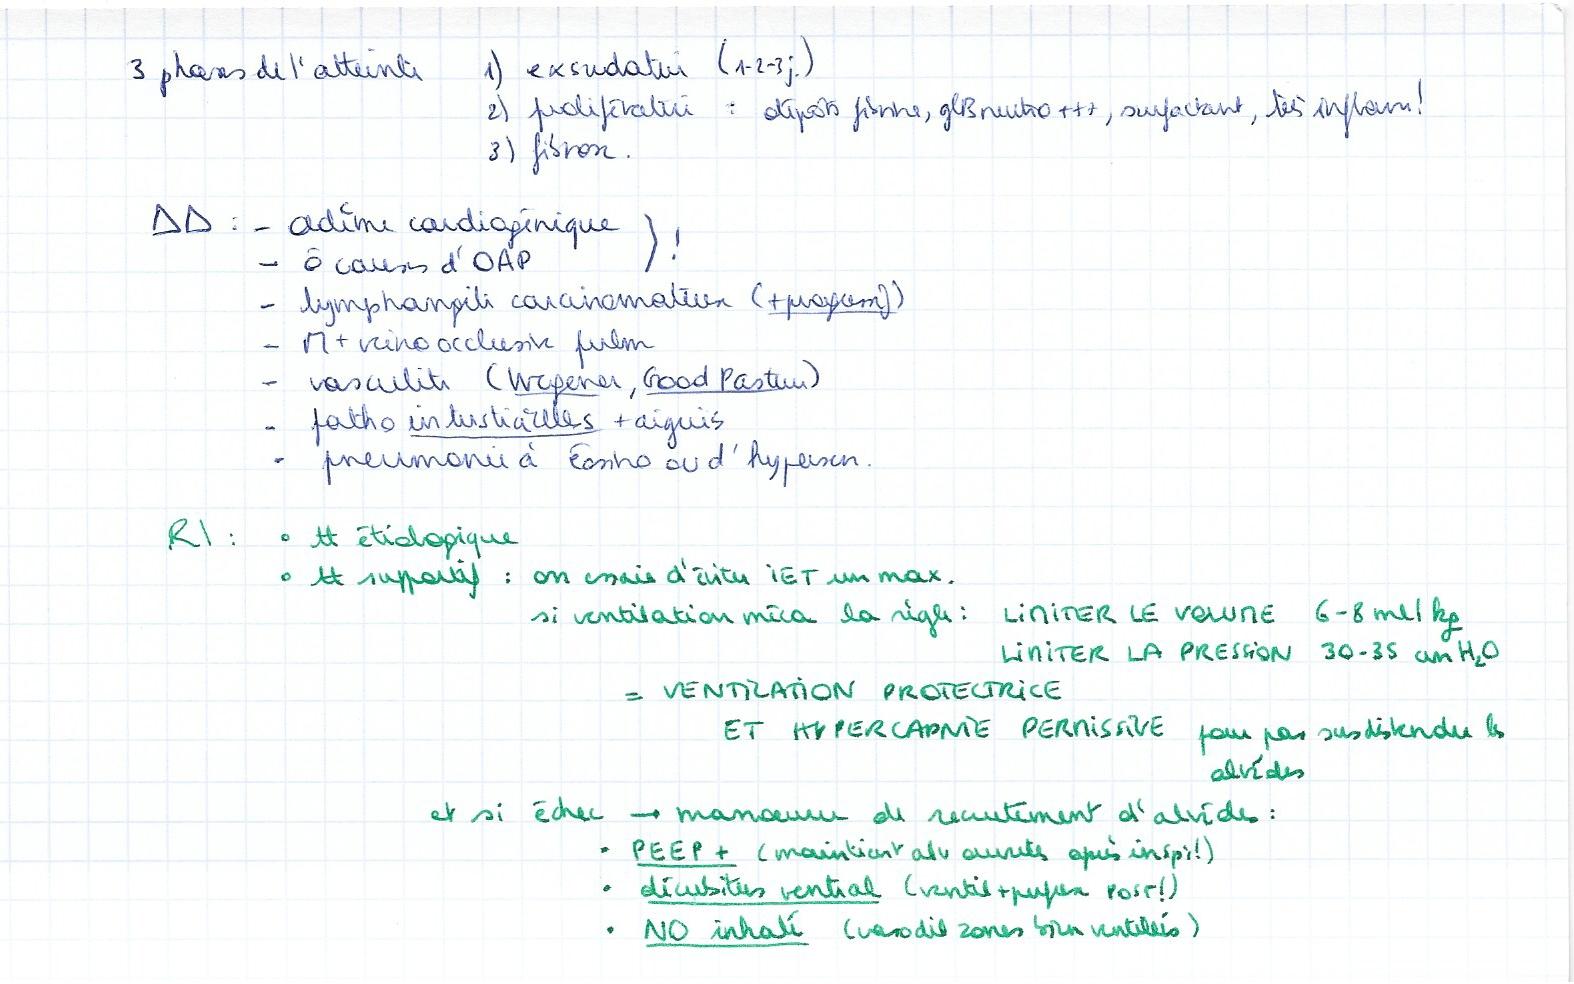 3 phases de l'atteinte 1) exsudative (1-2-3 j.)
2) proliférative : dépôts fibrine, glB neutro +++, surfactant, très inflam !
3) fibrose.
ΔΔ : - œdème cardiogénique } !
- ô causes d'OAP
- lymphangite carcinomateuse (+ progressif)
- M+ veino occlusive pulm
- vasculite (Wegener, Good Pasture)
- patho interstitielles + aiguës
- pneumonie à éosino ou d'hypersen.
R/ : • tt étiologique
• tt supportif : on essaie d'éviter iET un max.
si ventilation méca la règle : LIMITER LE VOLUME 6-8 ml/kg
LIMITER LA PRESSION 30-35 cm H₂O
= VENTILATION PROTECTRICE
ET HYPERCAPNIE PERMISSIVE pour pas surdistendre ls
alvéoles
et si échec → manœuvre de recrutement d'alvéoles :
• PEEP + (maintient alv ouvertes après inspi !)
• décubitus ventral (ventil + perfusé POST !)
• NO inhalé (vasodil zones bien ventilées)